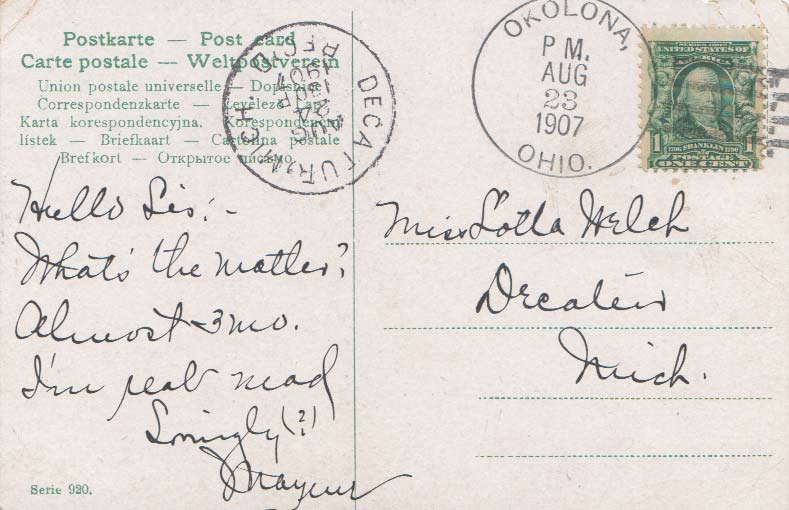 Postkarte — Post card
Carte postale — Weltpostverein
Union postale universelle — Dopisnice
Correspondenzkarte — Levelező Lap
Karta korespondencyjna. Korespondenční
lístek — Briefkaart — Cartolina postale
Brefkort — Открытое письмо.
DECATUR, MICH.
AUG
24
1907
REC'D.
OKOLONA,
P M.
AUG
23
1907
OHIO.
SERIES 1902
UNITED STATES OF
AMERICA
1 1
1706 FRANKLIN 1790
POSTAGE
ONE CENT
Hello Sis:-
What's the matter?
Almost 3 mo.
I'm real mad
Lovingly (?)
Miss Lotta Welch
Decatur
Mich.
Serie 920.